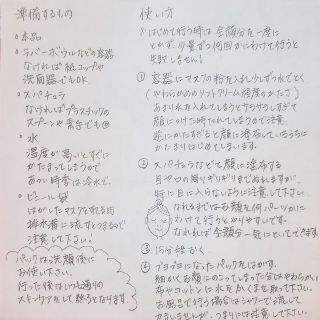 準備するもの
○ 本品
○ ラバーボウルなどの容器
なければ紙コップや
洗面器でもOK
○ スパチュラ
なければプラスチックの
スプーンや素手でも◎
○ 水
温度が高いとすぐに
かたまってしまうので
あつい時季は冷水で。
○ ビニール袋
はがしたマスクをすてる用
排水溝に流すとつまるので
注意して下さい。
パックは洗顔後に
お使い下さい。
行った後はいつも通りの
スキンケアをして終了となります。
使い方
はじめて行う時は全顔分を一度に
とかず、少量ずつ何回かにわけて行うと
失敗しません!
① 容器にマスクの粉を入れ少しずつ水でとく
(やわらかめのソフトクリーム程度のかたさ)
あまり水を入れてしまうとサラサラしすぎて
顔にのせた時たれてしまうので注意
逆にかたすぎると顔に塗布しているうちに
かたまりはじめてしまいます。
② スパチュラなどで顔に塗布する
目や口の周りギリギリまでぬれますが、
特に目に入らないように注意して下さい。
なれるまではお顔を何パーツかに
わけて行うとやりやすいです。
なれれば全顔を一気にといてできます。
③ 15分位おく
④ プヨプヨになったパックをはがす。
細かくお顔にのこってしまった分はやわらかい
布やコットンに水をふくませ取って下さい。
お風呂で行う場合はシャワーで流して